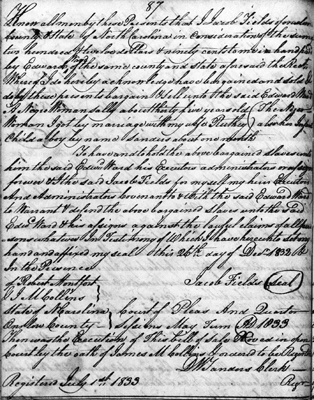 87
Know all men by these Presents that I Jacob Fields of
County & State of North Carolina in Consideration of the sum
two hundred & twelve dollars & ninety cents to me in hand
by Edward of the same county and State aforesaid the Receipt
Whereof I do hereby acknowledge have bargained and sold
do by these presents bargain & Sell unto the said Edward Ward
Negro Woman Sally about thirty five years old The Negro
Woman I got by marriage with my wife also her
Child a boy by name about one month
To have and to hold the above bargained slaves unto
him the said Edwd Ward his Executors administrators
forever & I the said Jacob Fields for myself my heirs Executors
And Administrators Covenant & With the said Edward Ward
to Warrant & defend the above bargained Slaves unto the said
Edwd Ward & his assigns against the lawful claims of all
persons whatever In Testimony of Which I have hereunto set my
hand and affixed my seal this 26th day of Decr 1832
In the Presence
of Robert Montfort
J M Collins
Jacob Fields Seal
State of N Carolina
Court of Pleas And Quarter
Onslow County
Sessions May Term AD 1833
Then was the Execution of this bill of sale Proved in open
Court by the oath of James M Collins & ordered to be Registered
D W Sanders Clerk
Registered July 1st 1833
Regr